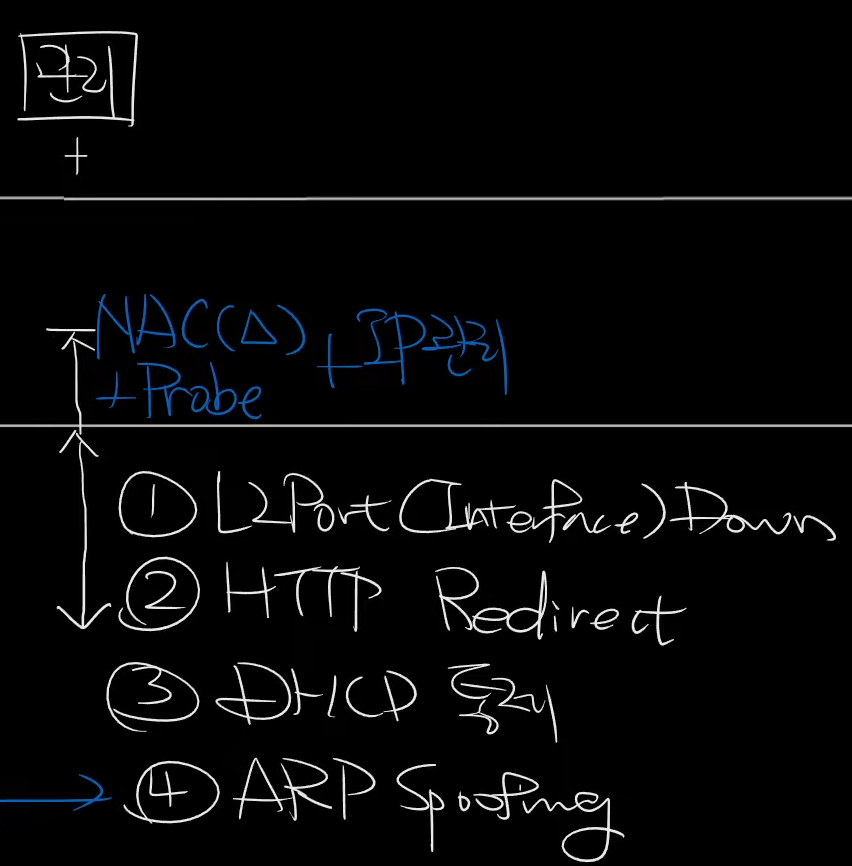 관리
+
NAC(△) + IP관리
+ Probe
① L2 Port (Interface) Down
② HTTP Redirect
③ DHCP 통제
④ ARP Spoofing